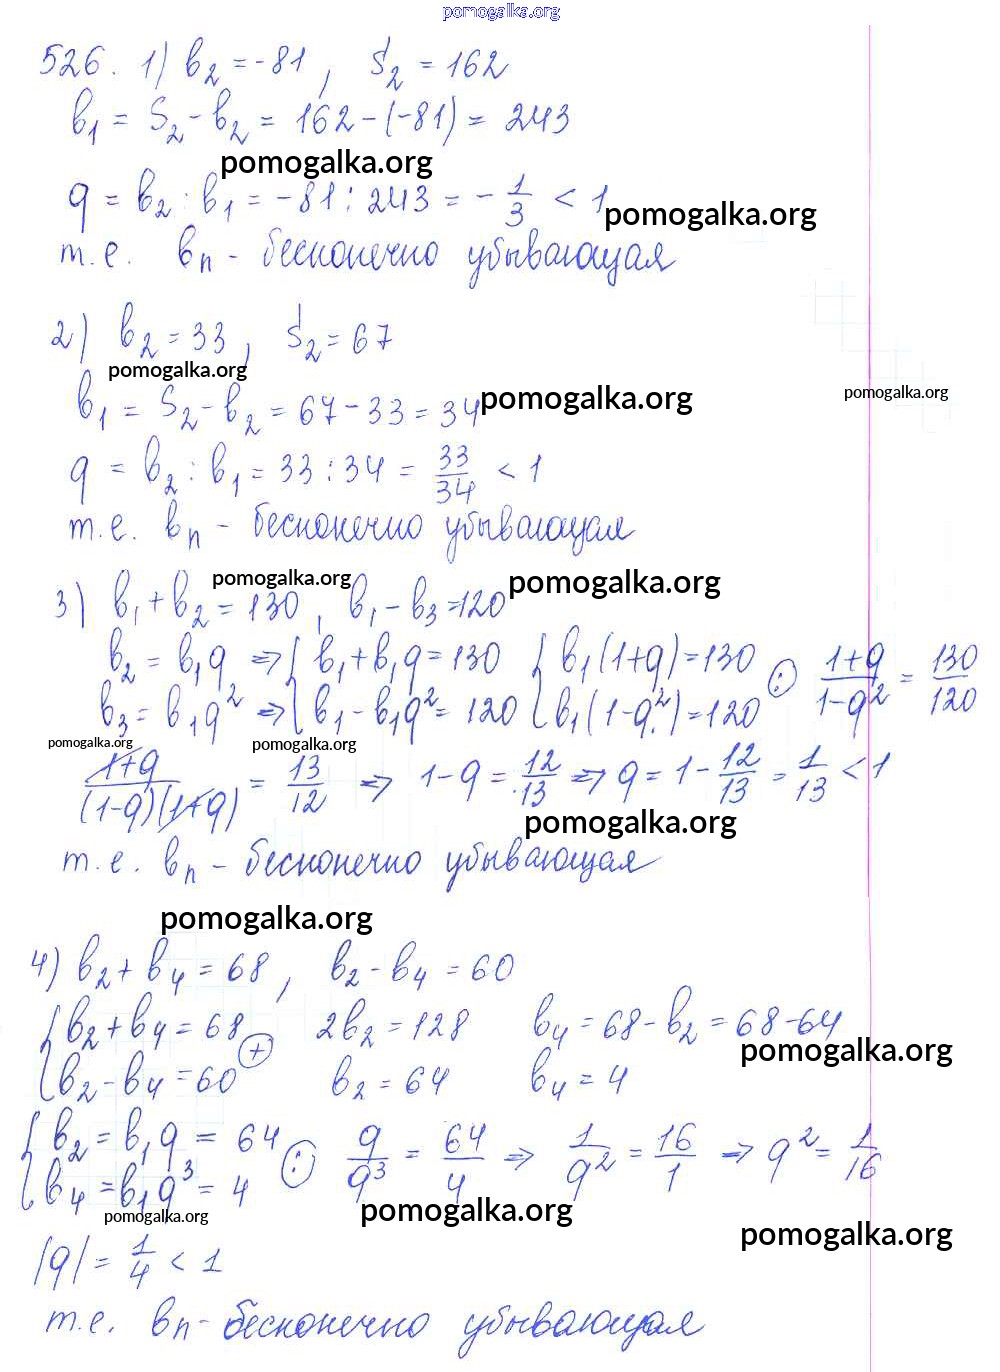 pomogalka.org
526. 1) b₂ = -81, S₂ = 162
b₁ = S₂ - b₂ = 162 - (-81) = 243
pomogalka.org
q = b₂ : b₁ = -81 : 243 = - 1/3 < 1
pomogalka.org
т.е. bₙ - бесконечно убывающая
2) b₂ = 33, S₂ = 67
pomogalka.org
b₁ = S₂ - b₂ = 67 - 33 = 34
pomogalka.org
pomogalka.org
q = b₂ : b₁ = 33 : 34 = 33/34 < 1
т.е. bₙ - бесконечно убывающая
pomogalka.org
pomogalka.org
3) b₁ + b₂ = 130, b₁ - b₃ = 120
b₂ = b₁q => { b₁ + b₁q = 130 { b₁(1+q) = 130 (:) (1+q)/(1-q²) = 130/120
b₃ = b₁q² => { b₁ - b₁q² = 120 { b₁(1-q²) = 120
pomogalka.org
pomogalka.org
(1+q)/((1-q)(1+q)) = 13/12 => 1 - q = 12/13 => q = 1 - 12/13 = 1/13 < 1
pomogalka.org
т.е. bₙ - бесконечно убывающая
pomogalka.org
4) b₂ + b₄ = 68, b₂ - b₄ = 60
{ b₂ + b₄ = 68 (+) 2b₂ = 128 b₄ = 68 - b₂ = 68 - 64
pomogalka.org
{ b₂ - b₄ = 60 b₂ = 64 b₄ = 4
{ b₂ = b₁q = 64 (:) q/q³ = 64/4 => 1/q² = 16/1 => q² = 1/16
{ b₄ = b₁q³ = 4
pomogalka.org
pomogalka.org
pomogalka.org
|q| = 1/4 < 1
т.е. bₙ - бесконечно убывающая